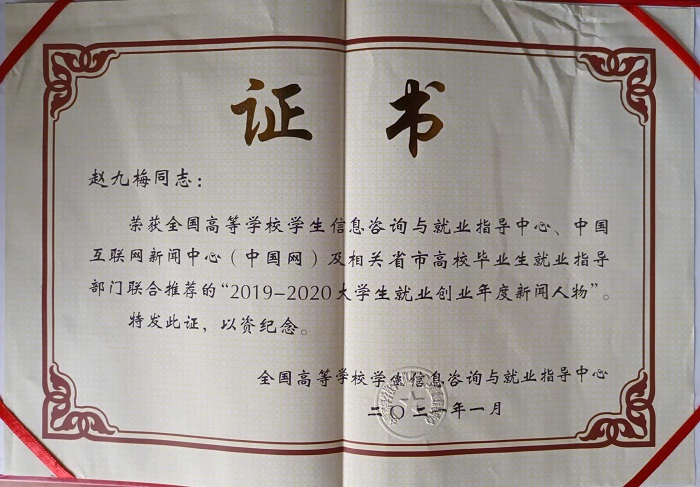 证书
赵九梅同志：
荣获全国高等学校学生信息咨询与就业指导中心、中国
互联网新闻中心（中国网）及相关省市高校毕业生就业指导
部门联合推荐的“2019-2020大学生就业创业年度新闻人物”。
特发此证，以资纪念。
全国高等学校学生信息咨询与就业指导中心
二〇二一年一月